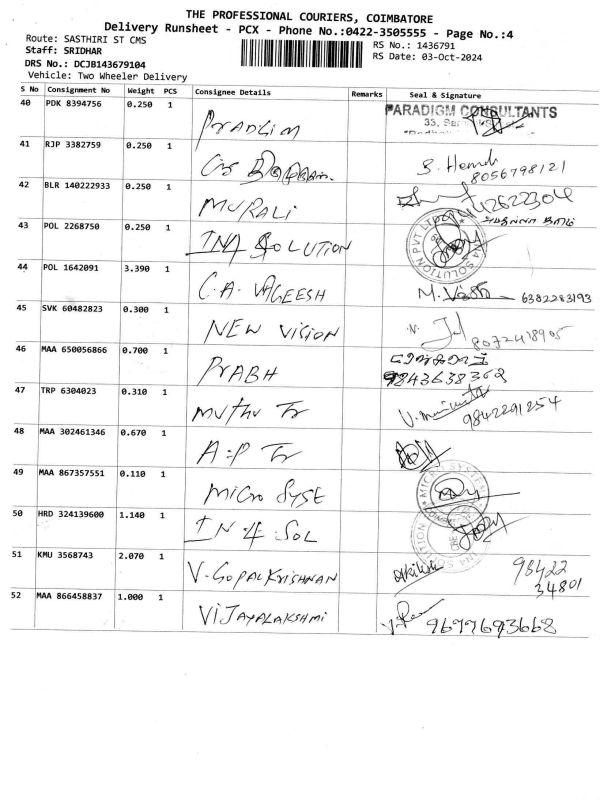 THE PROFESSIONAL COURIERS, COIMBATORE
Delivery Runsheet - PCX - Phone No.:0422-3505555 - Page No.:4
Route: SASTHIRI ST CMS
RS No.: 1436791
Staff: SRIDHAR
RS Date: 03-Oct-2024
DRS No.: DCJB143679104
Vehicle: Two Wheeler Delivery
S No Consignment No Weight PCS Consignee Details Remarks Seal & Signature
40 PDK 8394756 0.250 1 PARADIGM CONSULTANTS
41 RJP 3382759 0.250 1 8056798121
42 BLR 140222933 0.250 1 MURALI
43 POL 2268750 0.250 1 SOLUTION
44 POL 1642091 3.390 1 C.A. VAGEESH 6382283193
45 SVK 60482823 0.300 1 NEW VISION 8072418905
46 MAA 650056866 0.700 1 PRABH 9843638362
47 TRP 6304023 0.310 1 MUTHU Tr 9842291254
48 MAA 302461346 0.670 1 A.P Tr
49 MAA 867357551 0.110 1 MICRO SYSE
50 HRD 324139600 1.140 1 IN 4 SOL
51 KMU 3568743 2.070 1 V. GOPALKRISHNAN 98422
34801
52 MAA 866458837 1.000 1 VIJAYALAKSHMI 9677693668